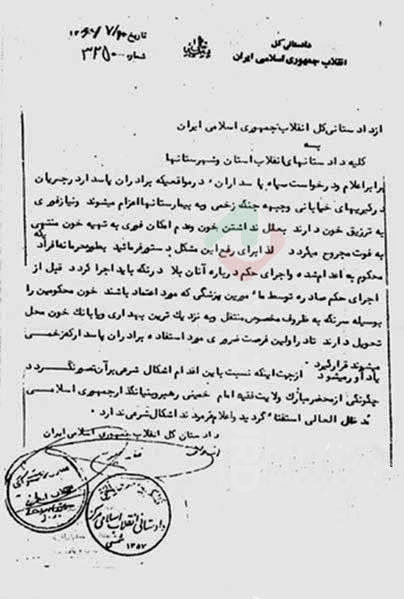 دادستانی کل
انقلاب جمهوری اسلامی ایران
تاریخ
شماره ۳۲۵۰۰۰
از دادستانی کل انقلاب جمهوری اسلامی ایران
به
کلیه دادستانهای انقلاب استان و شهرستانها
برابر اعلام و درخواست سپاه پاسداران، در مواقعیکه برادران پاسدار در جریان
درگیریهای خیابانی و جبهه جنگ زخمی و به بیمارستانها اعزام میشوند و نیاز فوری
به تزریق خون دارند بعلل نداشتن خون و عدم امکان فوری به تهیه خون منتهی
به فوت مجروح میگردد لذا برای رفع این مشکل دستور فرمائید بطور محرمانه افراد
محکوم به اعدام شده و اجرای حکم درباره آنان بلا درنگ باید اجرا گردد قبل از
اجرای حکم صادره توسط مامورین پزشکی که مورد اعتماد باشند خون محکومین را
بوسیله سرنگ به ظروف مخصوص منتقل و به نزدیک ترین بهداری و یا بانک خون محل
تحویل دارند تا در اولین فرصت ضروری مورد استفاده برادران پاسدار که زخمی
میشوند قرار گیرد
یادآور میشود از جهت اینکه نسبت باین اقدام اشکال شرعی بر آن تصور نگردد
چگونگی از محضر مبارک ولایت فقیه امام خمینی رهبر و بنیانگذار جمهوری اسلامی
مدظله العالی استفتاء گردید و اعلام فرمودند اشکال شرعی ندارد.
دادستان کل انقلاب جمهوری اسلامی ایران
دادستانی انقلاب اسلامی مرکز